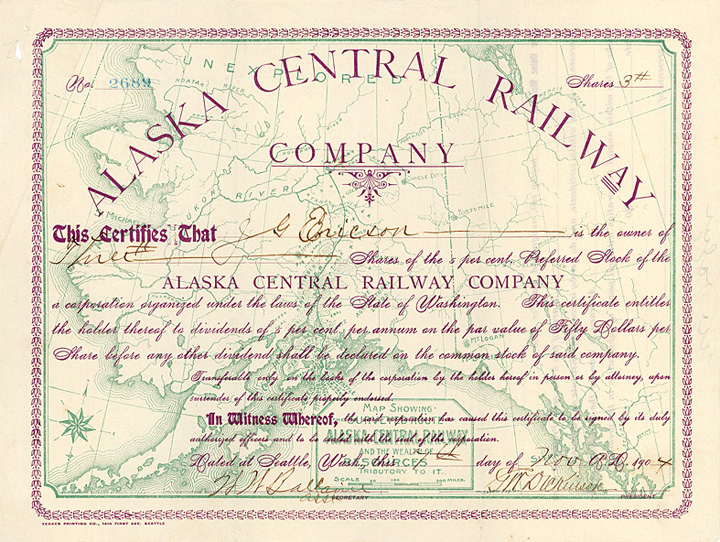 ALASKA CENTRAL RAILWAY
No. 2689
Shares 3
COMPANY
UNEXPLORED
NOATAK RIVER
YUKON RIVER
CIRCLE CITY
This Certifies That J G Ericson is the owner of
Three Shares of the 5 per cent. Preferred Stock of the
ALASKA CENTRAL RAILWAY COMPANY
a corporation organized under the laws of the State of Washington. This certificate entitles
the holder thereof to dividends of 5 per cent. per annum on the par value of Fifty Dollars per
Share before any other dividend shall be declared on the common stock of said company.
MT LOGAN
Transferable only on the books of the corporation by the holder hereof in person or by attorney, upon
surrender of this certificate properly endorsed.
In Witness Whereof, the said corporation has caused this certificate to be signed by its duly
authorized officers and to be sealed with the seal of the corporation.
Dated at Seattle, Wash., this day of Nov A.D. 1904
MAP SHOWING
SURVEYED ROUTE
ALASKA CENTRAL RAILWAY
AND THE WEALTH OF
RESOURCES
TRIBUTORY TO IT.
SCALE
200 MILES.
SECRETARY
PRESIDENT
PRINTING CO., 1419 FIRST AVE. SEATTLE